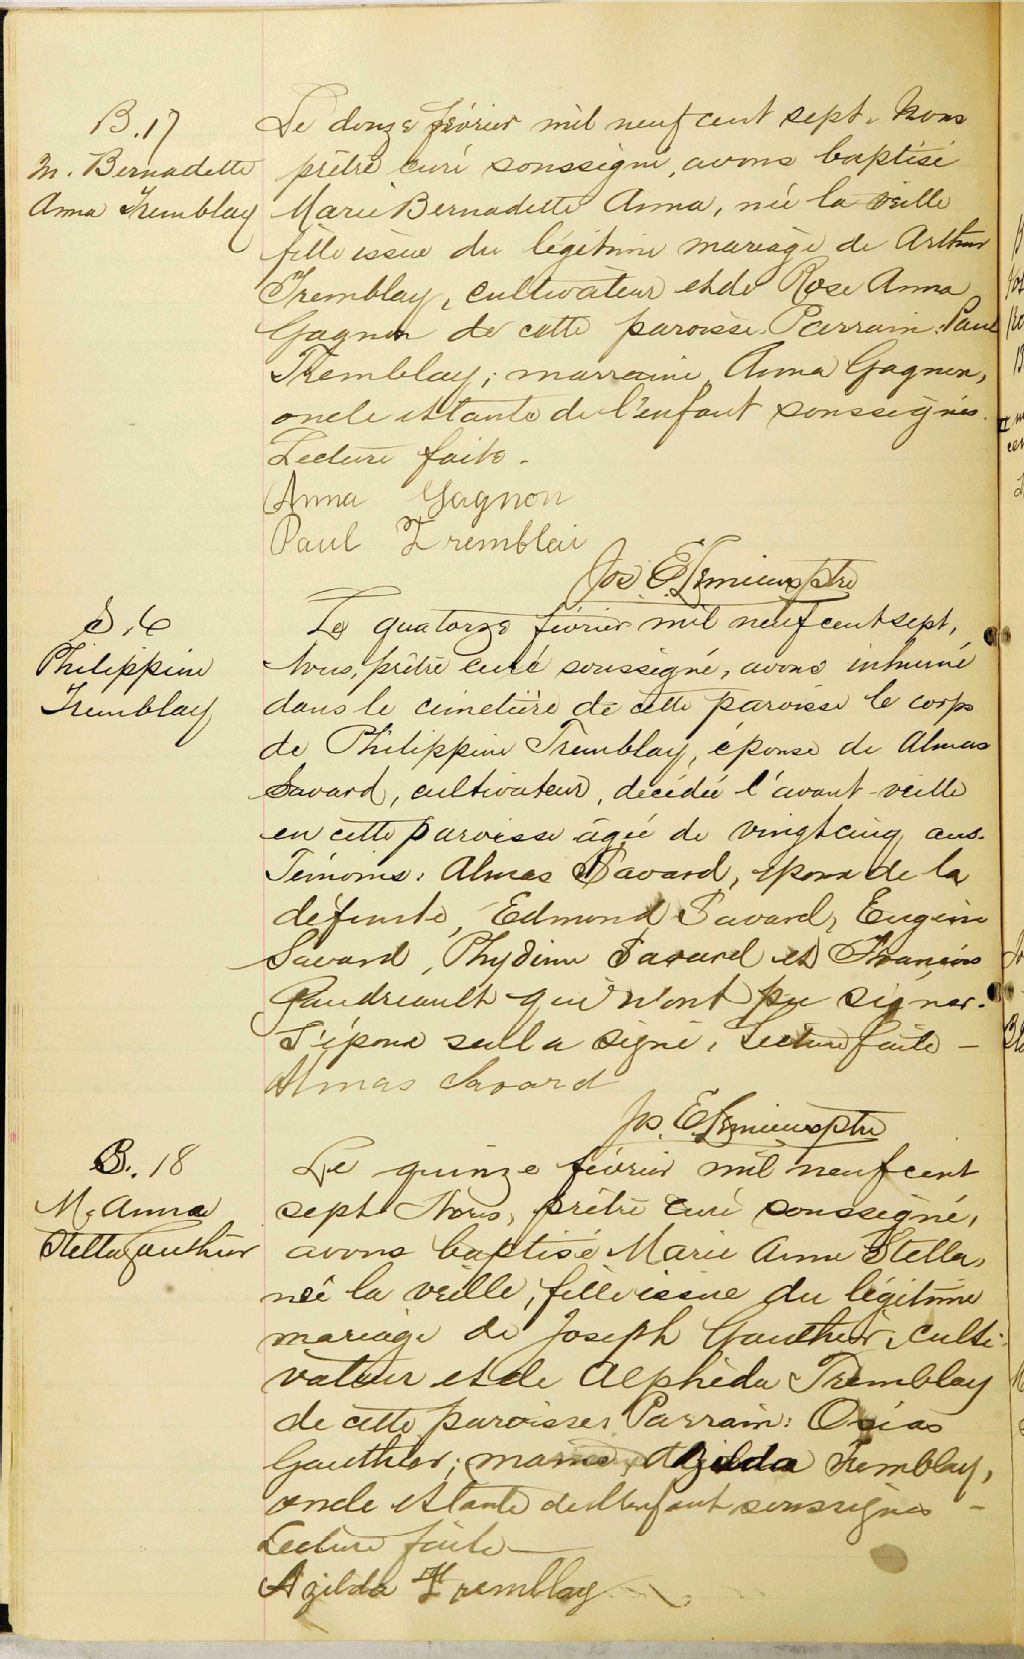 B. 17
M. Bernadette
Anna Tremblay
Le douze février mil neuf cent sept. Nous
prêtre curé soussigné, avons baptisé
Marie Bernadette Anna, née la veille
fille issue du légitime mariage de Arthur
Tremblay, cultivateur et de Rose Anna
Gagnon de cette paroisse. Parrain: Paul
Tremblay; marraine, Anna Gagnon,
oncle et tante de l'enfant soussignés.
Lecture faite.
Anna Gagnon
Paul Tremblai
Jos. E. Lemieux ptre
S. 6
Philippine
Tremblay
Le quatorze février mil neuf cent sept,
Nous, prêtre curé soussigné, avons inhumé
dans le cimetière de cette paroisse le corps
de Philippine Tremblay, épouse de Almas
Savard, cultivateur, décédée l'avant-veille
en cette paroisse âgée de vingt cinq ans.
Témoins: Almas Savard, époux de la
défunte, Edmond Savard, Eugène
Savard, Phydime Savard et François
Gaudreault qui n'ont pu signer.
L'époux seul a signé, Lecture faite —
Almas Savard
Jos. E. Lemieux ptre
B. 18
M. Anna
Stella Gauthier
Le quinze février mil neuf cent
sept Nous, prêtre curé soussigné,
avons baptisé Marie Anna Stella,
née la veille, fille issue du légitime
mariage de Joseph Gauthier, culti-
vateur et de Alphéda Tremblay
de cette paroisse. Parrain: Osias
Gauthier; Azilda Tremblay,
oncle et tante de l'enfant soussignés —
Lecture faite —
Azilda Tremblay